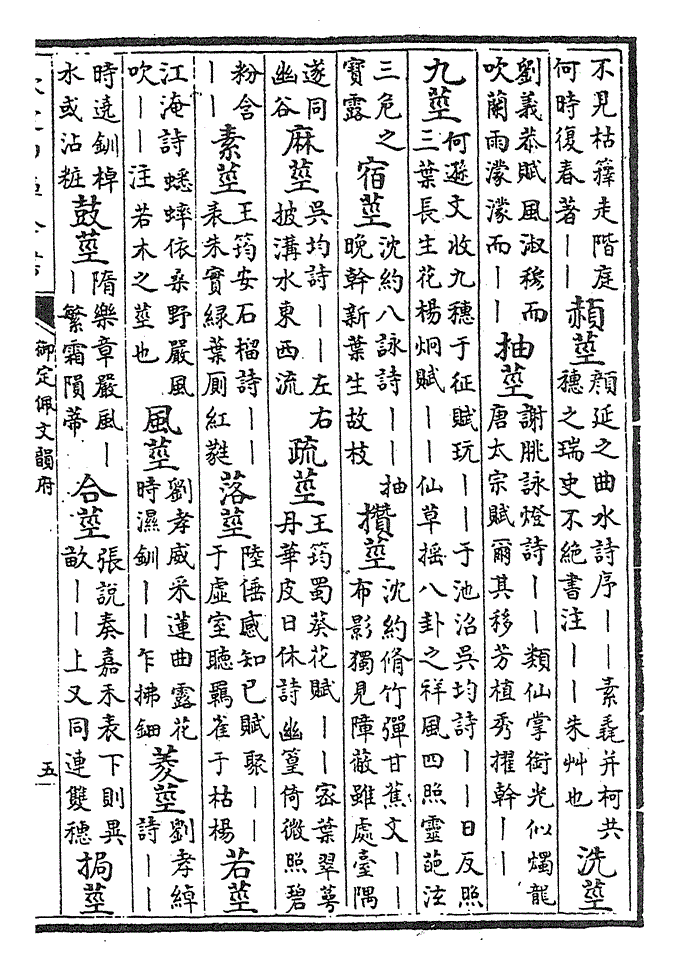 不見枯籜走階庭何時復春著｜｜赬莖顔延之曲水詩序｜｜素毳并柯共穗之瑞史不絕書注｜｜朱艸也洗莖
劉義恭賦風淑穆而吹蘭雨濛濛而｜｜抽莖謝朓詠燈詩｜｜類仙掌銜光似燭龍唐太宗賦爾其移芳植秀擢幹｜｜
九莖何遜文收九穗于征賦玩｜｜于池沼吳均詩｜｜日反照三葉長生花楊炯賦｜｜仙草搖八卦之祥風四照靈葩泫
三危之寶露宿莖沈約八詠詩｜｜抽晚幹新葉生故枝攢莖沈約脩竹彈甘蕉文｜｜布影獨見障蔽雖處臺隅
遂同幽谷麻莖吳均詩｜｜左右披溝水東西流疏莖王筠蜀葵花賦｜｜密葉翠萼丹華皮日休詩幽篁倚微照碧
粉含｜｜素莖王筠安石榴詩｜｜表朱實緑葉厠紅蕤落莖陸倕感知已賦聚｜｜于虛室聽羈雀于枯楊若莖
江淹詩蟋蟀依桑野嚴風吹｜｜注若木之莖也風莖劉孝威采蓮曲露花時濕釧｜｜乍拂鈿菱莖劉孝綽詩｜｜
時遶釧棹水或沾粧鼓莖隋樂章嚴風｜｜繁霜隕蒂合莖張說奏嘉禾表下則異畝｜｜上又同連雙穗挶莖
御定佩文韻府 五